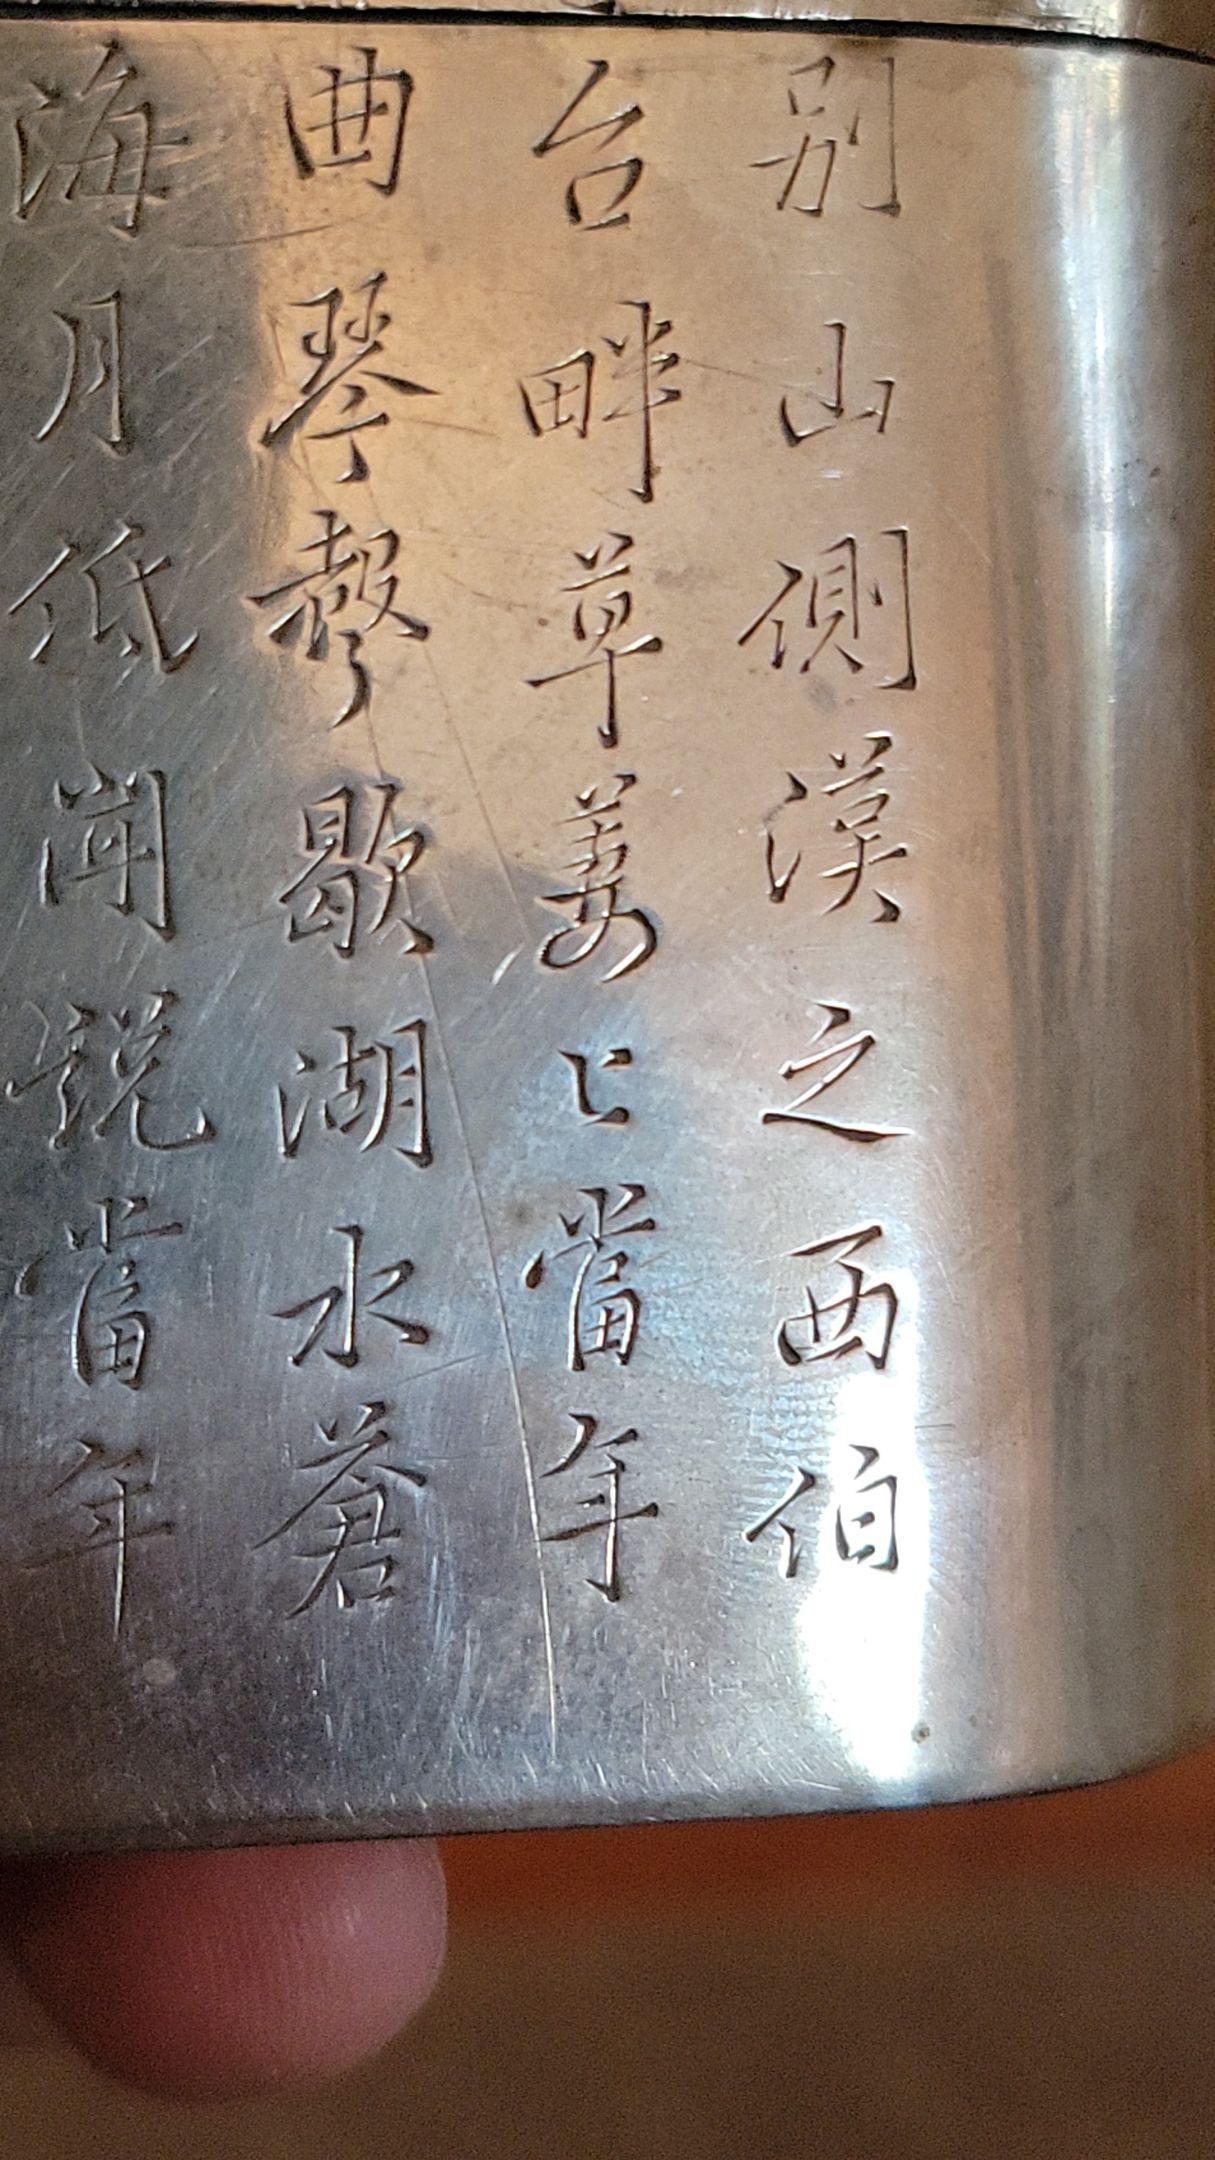 别山側漢之西伯
台畔草萋々當年
曲琴聲歇湖水蒼
海月低聞説當年